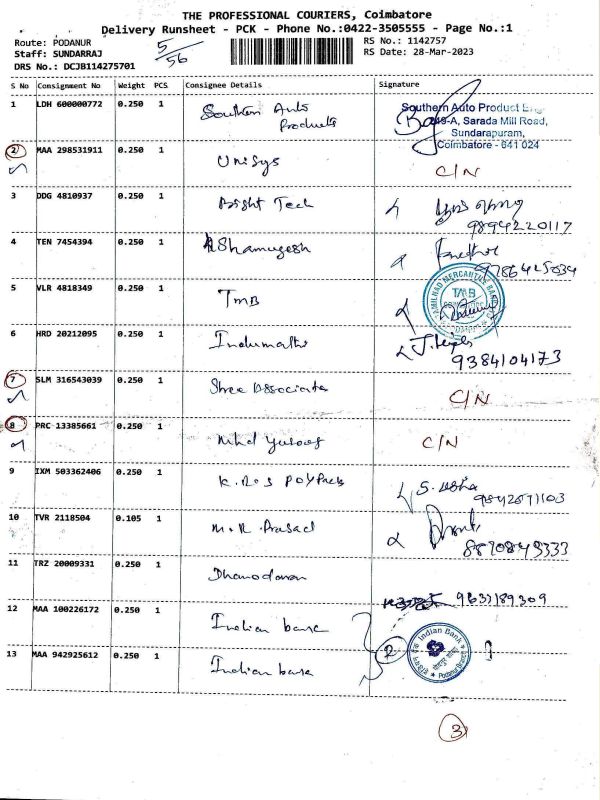 THE PROFESSIONAL COURIERS, Coimbatore
Delivery Runsheet - PCK - Phone No.:0422-3505555 - Page No.:1
Route: PODANUR
Staff: SUNDARRAJ
DRS No.: DCJB114275701
5/56
RS No.: 1142757
RS Date: 28-Mar-2023
S No Consignment No Weight PCS Consignee Details Signature
1 LDH 600000772 0.250 1 Southern Auto Products
Southern Auto Product Eng
Sarada Mill Road,
Sundarapuram,
Coimbatore - 641 024
2 MAA 298531911 0.250 1 Unisys C/N
3 DDG 4810937 0.250 1 Bright Tech
9894220117
4 TEN 7454394 0.250 1
5 VLR 4818349 0.250 1 TMB
TAMILNAD MERCANTILE BANK
TMB
6 HRD 20212095 0.250 1 Indumathi
9384104173
7 SLM 316543039 0.250 1 Shree Associates C/N
8 PRC 13385661 0.250 1 Mhd Yusoof C/N
9 IXM 503362406 0.250 1 K.R.S Polypack S. Usha
10 TVR 2118504 0.105 1 M.R. Prasad
11 TRZ 20009331 0.250 1 Dhamodaran
12 MAA 100226172 0.250 1 Indian bank
13 MAA 942925612 0.250 1 Indian bank
2
Indian Bank
Podanur Branch
3